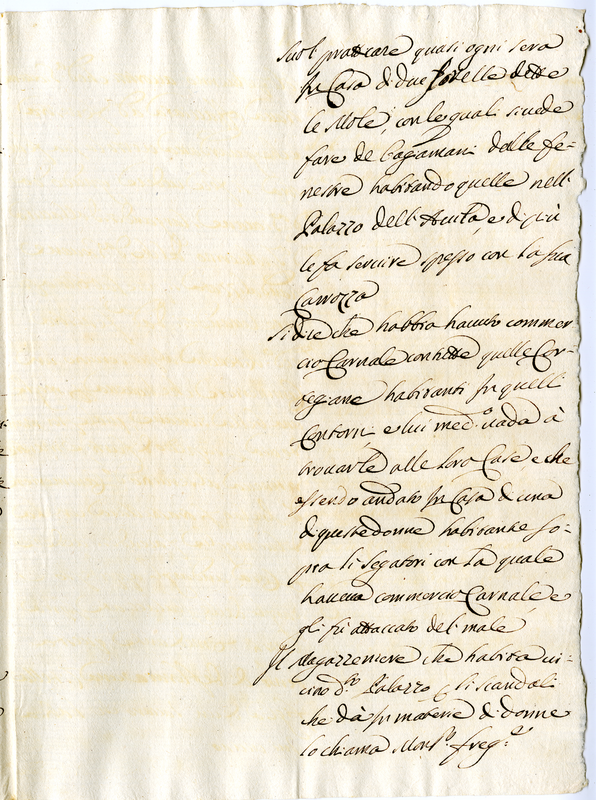 Suol pratticare quasi ogni sera
In Casa di due sorelle dette
le Mole, con le quali si vede
fare de baciamani dalle fe=
nestre habitando quelle nell
Palazzo dell' Acuta, e di più
le fa servire spesso con la sua
Carrozza
Si dice che habbia havuto commer
cio Carnale con tutte quelle Cor=
tegiane habitanti In quelli
Contorni e lui med.o vada à
trovarle alle loro Case, e che
essendo andato In Casa di una
di queste donne habitante so=
pra li segatori con la quale
haveva commercio Carnale e
gli fù attaccato del male
Il Magazzeniere che habita vi=
cino d.o Palazzo li scandali
che dà In materie di donne
lo chiama Mons.r freg.a